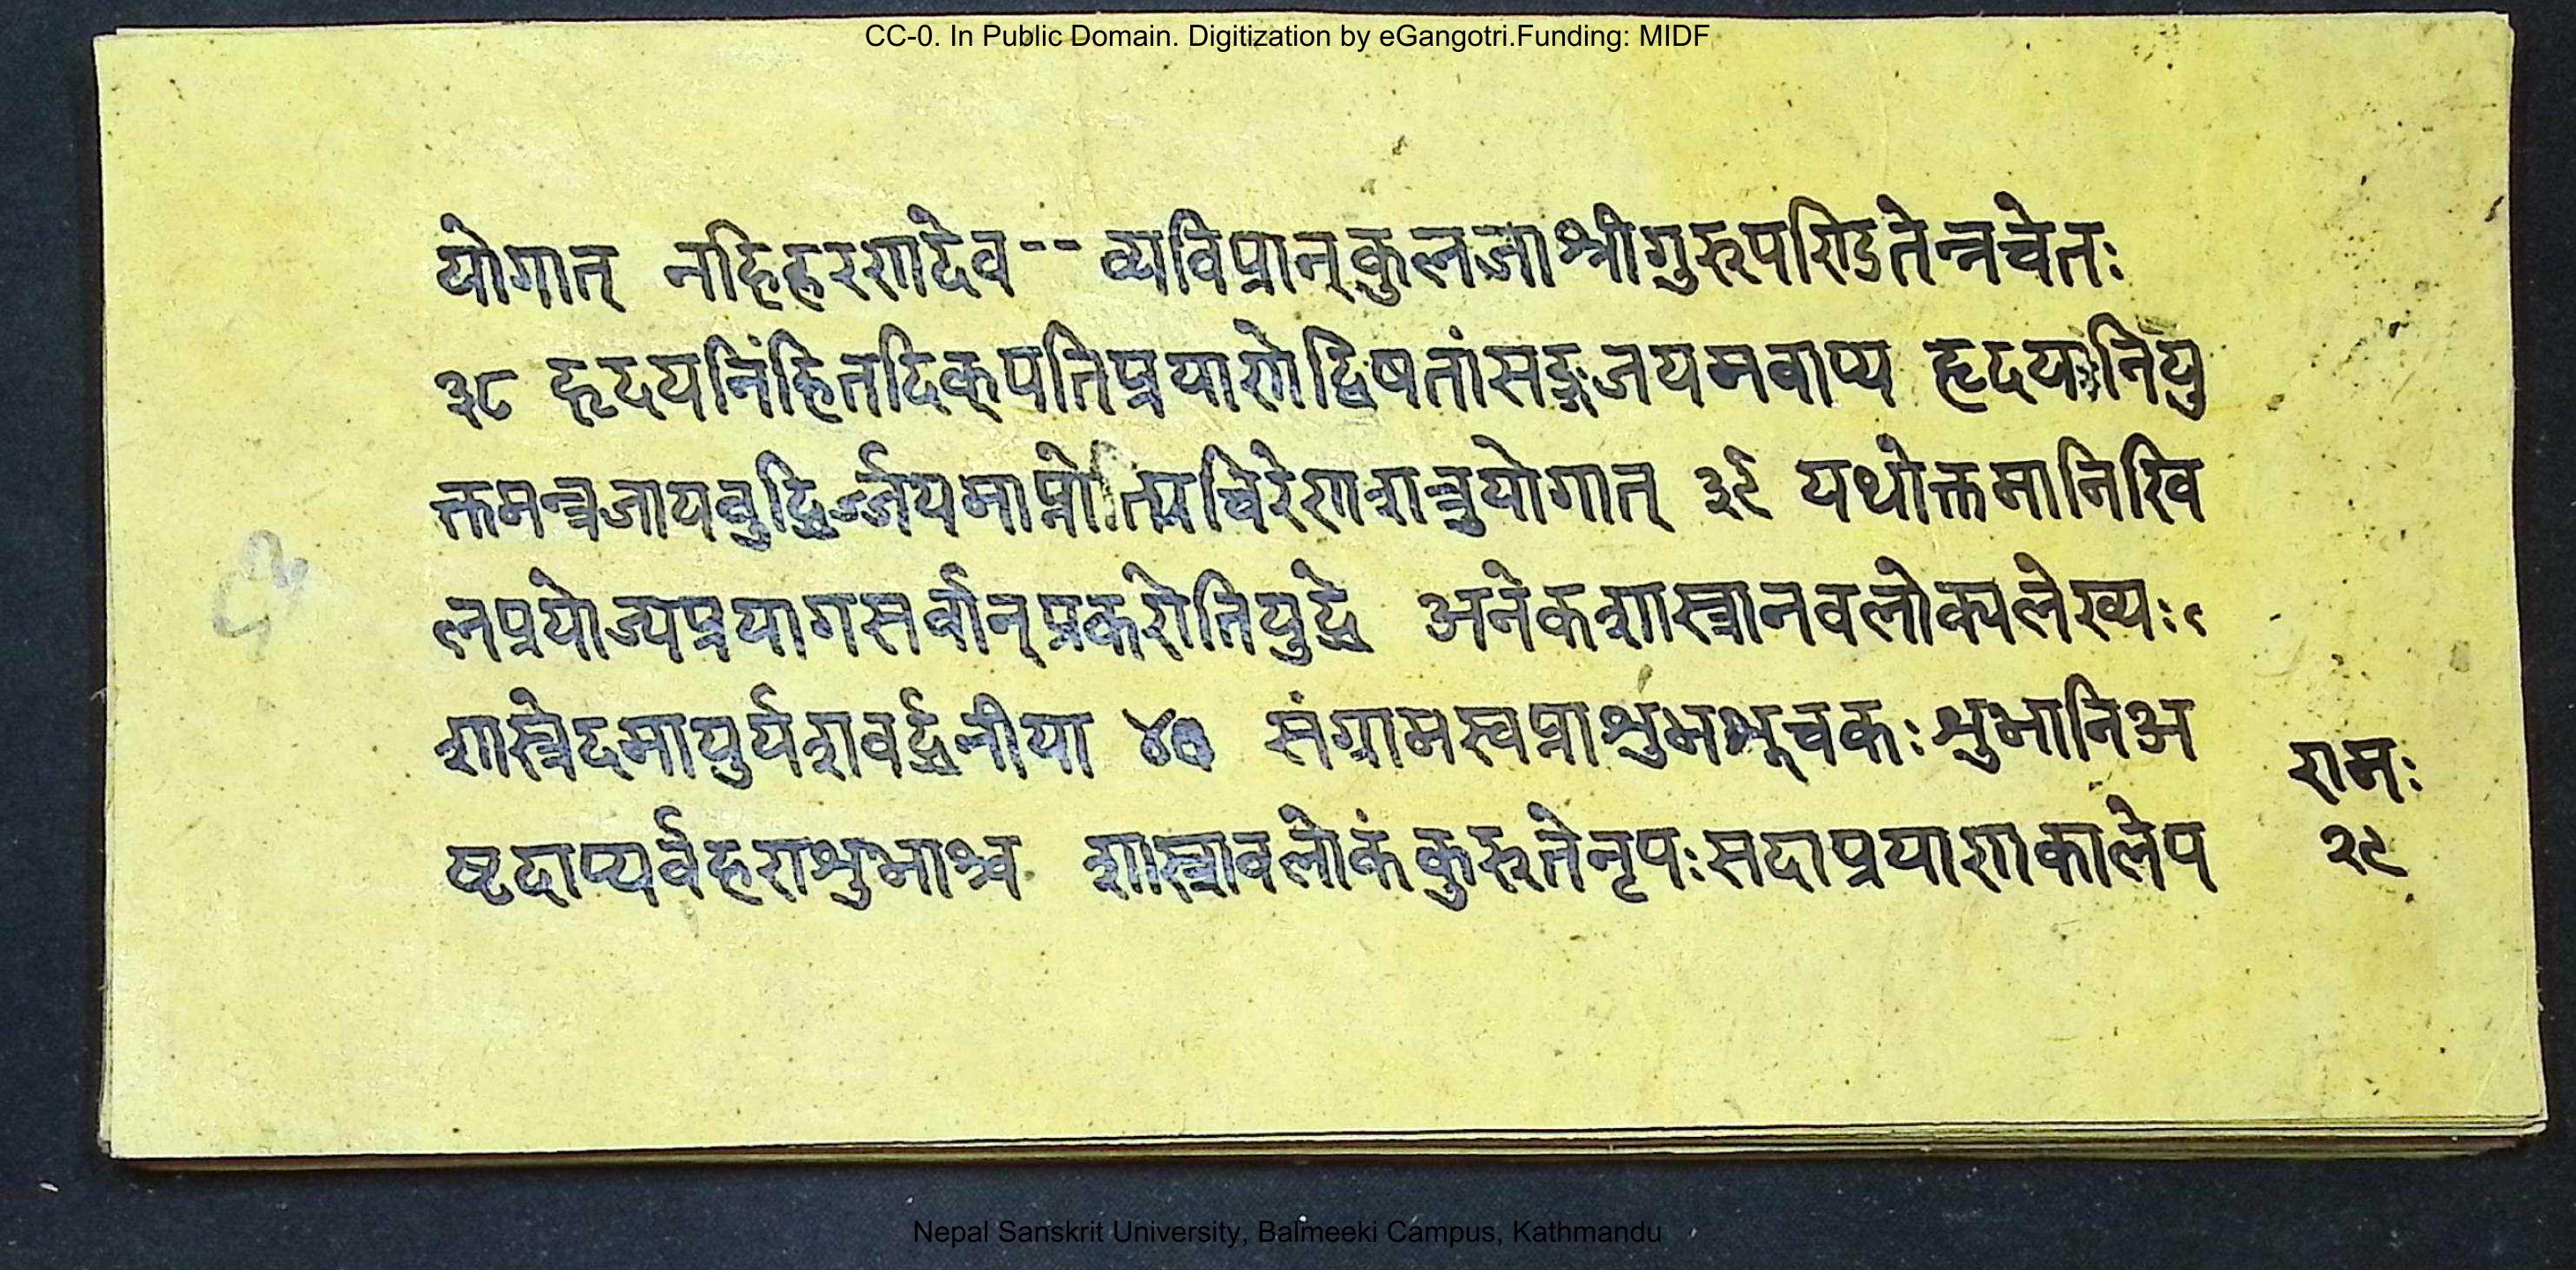 CC-0. In Public Domain. Digitization by eGangotri.Funding: MIDF
योगात् नहिहरणादेव-- व्यविप्रान्कुलजाश्रीगुरुपण्डितेन्त्रचेतः
३८ हृदयनिंहितदिक्पतिप्रयाणेद्विषतांसङ्गजयमवाप्य हृदयानियु
क्तमन्त्रजायबुद्धिर्ज्जयमाप्नोतियचिरेणशत्रुयोगात् ३९ यथोक्तमानिखि
लप्रयोज्यप्रयागसर्वान्प्रकरोतियुद्धे अनेकशास्त्रानवलोक्यलेख्यः
शास्त्रेदमायुर्यशवर्द्धनीया ४० संग्रामस्वप्नाशुभशूचकः शुभानिअ
ष्टदाप्यर्वहराशुभाश्च शास्त्रावलोकंकुरुतेनृपःसदाप्रयाणकालेप
रामः
२९
Nepal Sanskrit University, Balmeeki Campus, Kathmandu